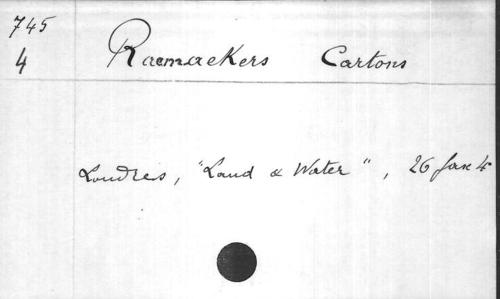 745
4
Raemaekers Cartons
Londres, "Land & Water", 26 fasc 4º